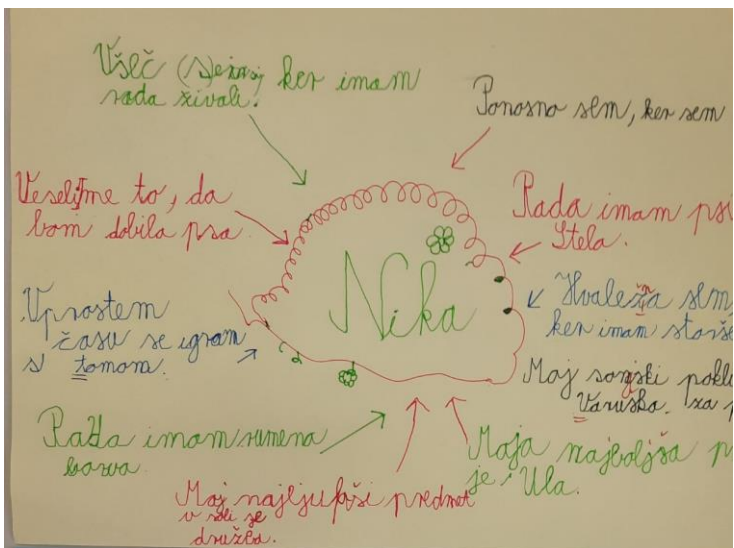 Všeč (s)
ker imam
rada živali.
Ponosno sem, ker sem
Veselime to, da
bom dobila psa.
Rada imam psi
Stela.
Nika
Uprostem
času se igram
s tomom.
Hvaležna sem,
ker imam starše
Moj sanjski pokli
Varuška. za p
Rada imam rumena
barva.
Moja najboljša p
je: Ula.
Moj najljubši predmet
v šoli se
družba.